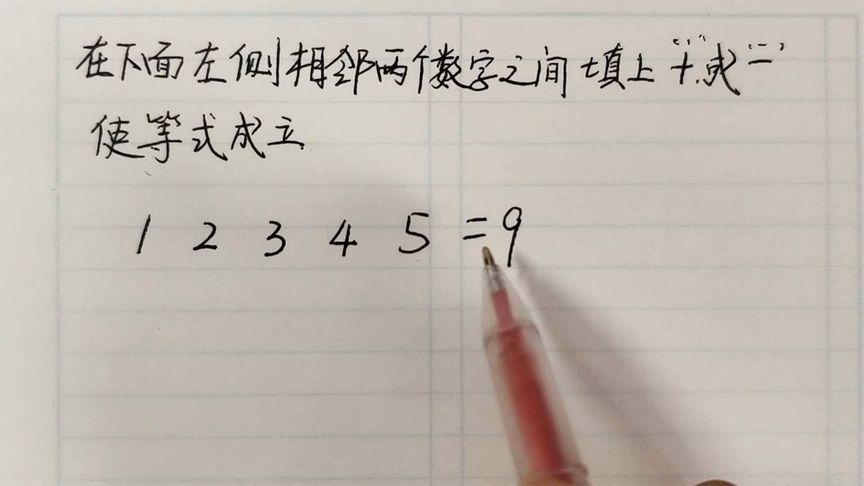 在下面左侧相邻两个数字之间填上"+"或"-"
使等式成立
1 2 3 4 5 =9